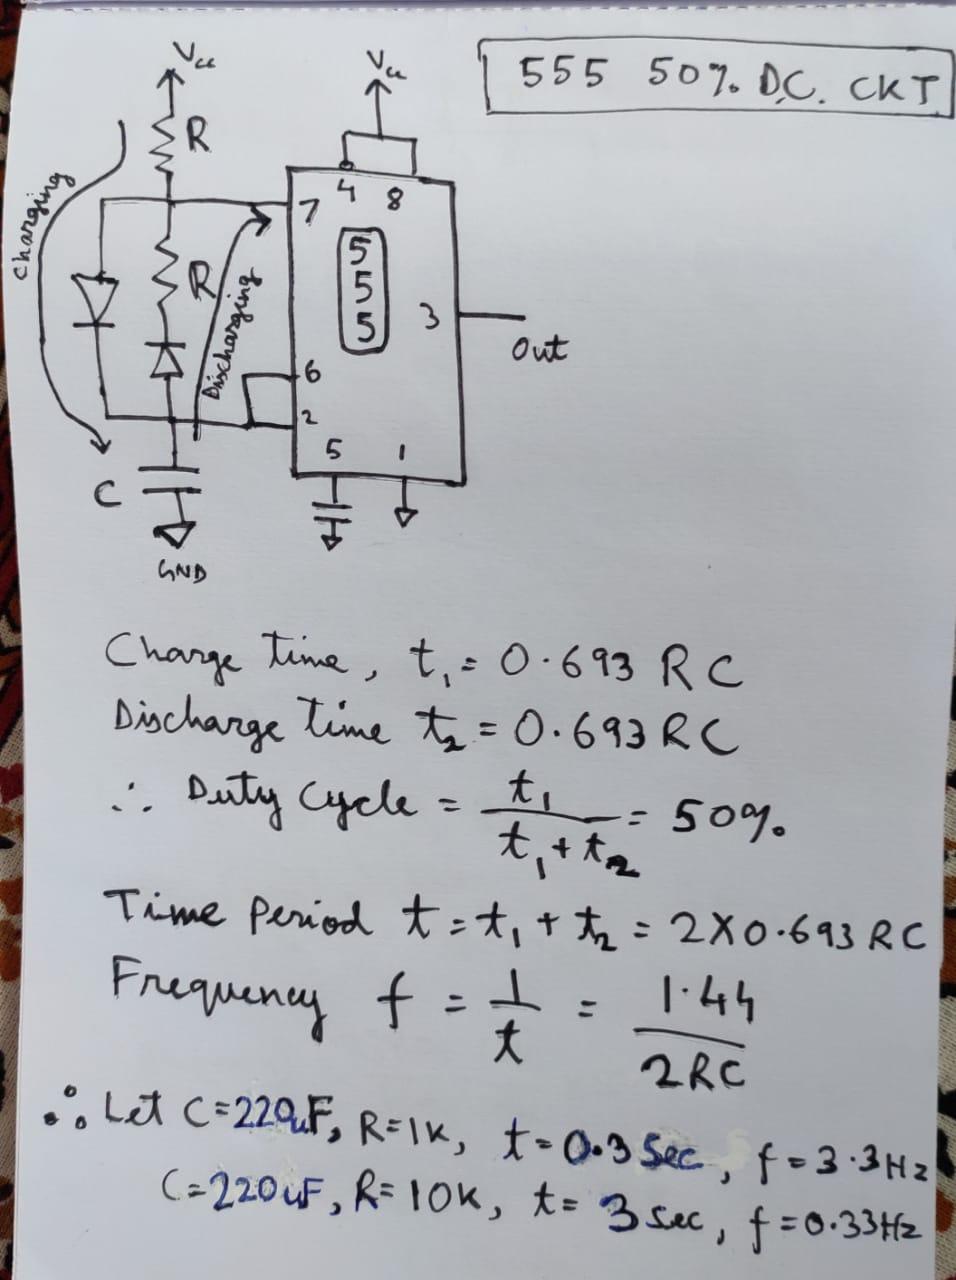 555 50% D.C. CKT
Vcc
Vcc
R
Charging
7
4
8
R
Discharging
555
3
Out
6
2
5
1
C
GND
Charge time, t₁ = 0.693 RC
Discharge time t₂ = 0.693 RC
∴ Duty Cycle = t₁ / t₁ + t₂ = 50%
Time Period t = t₁ + t₂ = 2X0.693 RC
Frequency f = 1 / t = 1.44 / 2RC
∴ Let C=220uF, R=1K, t=0.3 Sec, f=3.3Hz
C=220uF, R=10K, t= 3 sec, f=0.33Hz